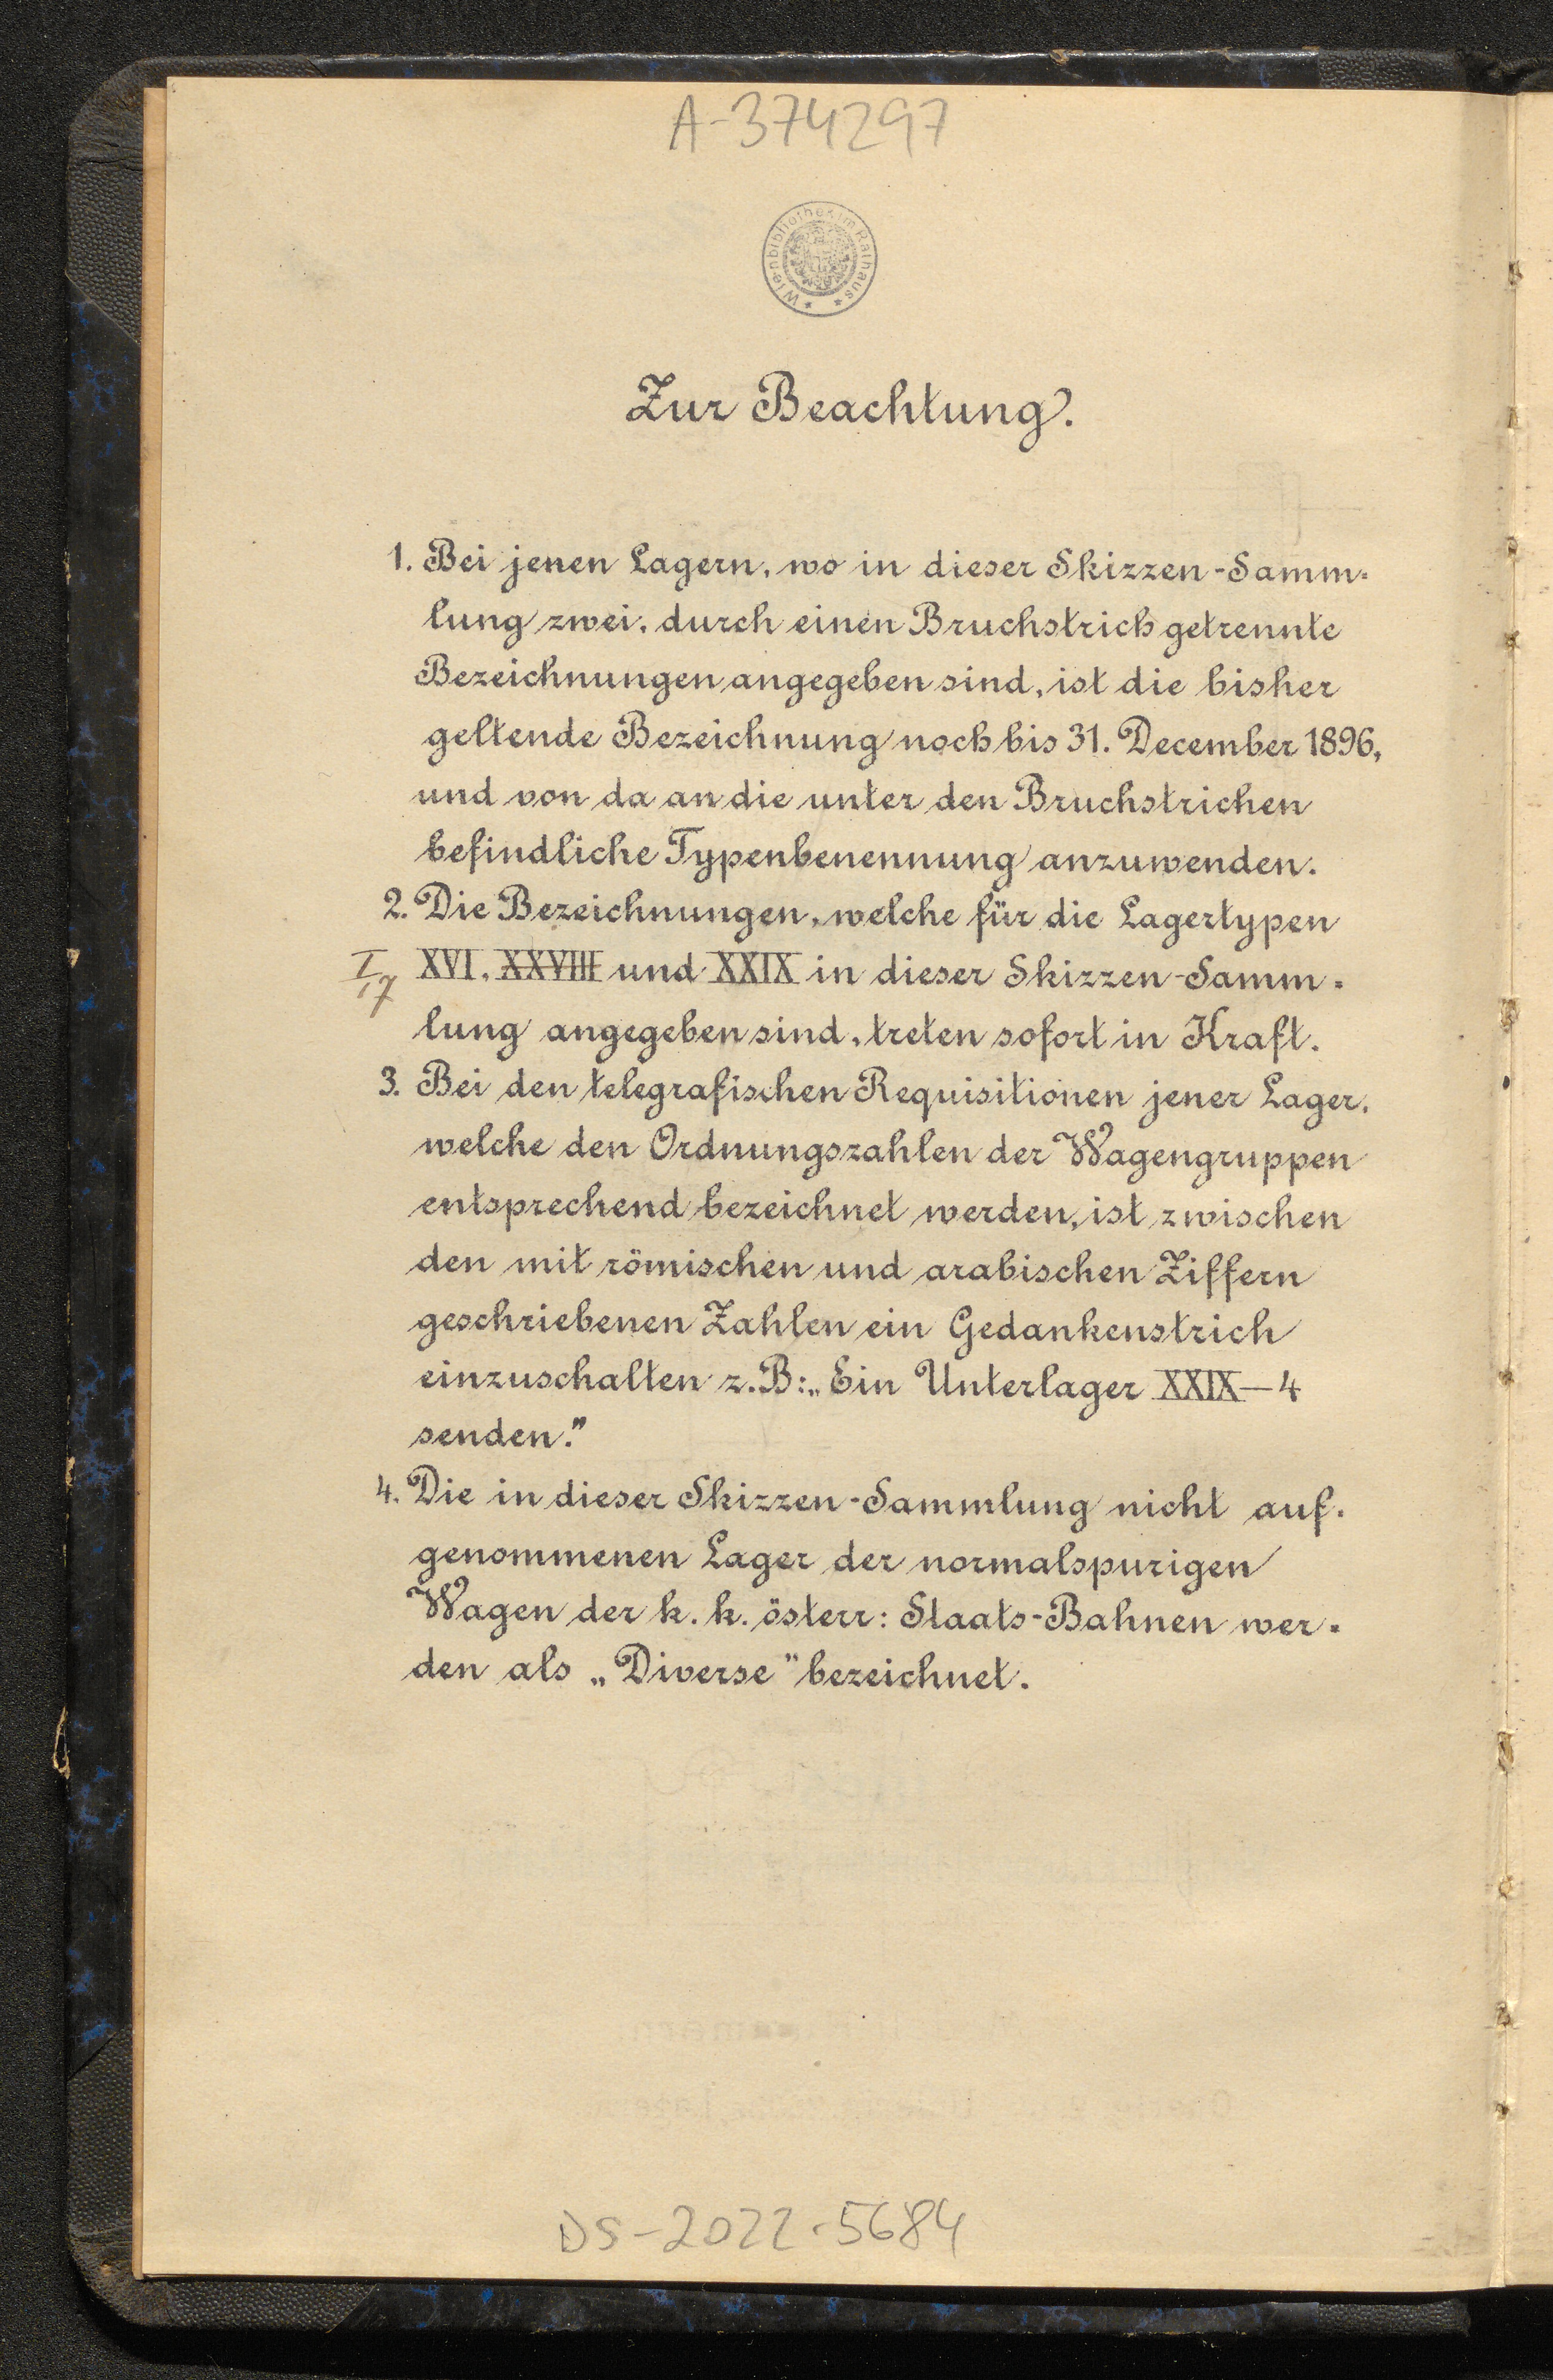 A-374297
Wienbibliothek im Rathaus
Zur Beachtung.
1. Bei jenen Lagern, wo in dieser Skizzen-Samm-
lung zwei, durch einen Bruchstrich getrennte
Bezeichnungen angegeben sind, ist die bisher
geltende Bezeichnung noch bis 31. December 1896,
und von da an die unter den Bruchstrichen
befindliche Typenbenennung anzuwenden.
2. Die Bezeichnungen, welche für die Lagertypen
I,7 XVI, XXVIII und XXIX in dieser Skizzen-Samm-
lung angegeben sind, treten sofort in Kraft.
3. Bei den telegrafischen Requisitionen jener Lager,
welche den Ordnungszahlen der Wagengruppen
entsprechend bezeichnet werden, ist zwischen
den mit römischen und arabischen Ziffern
geschriebenen Zahlen ein Gedankenstrich
einzuschalten z.B.: „Ein Unterlager XXIX—4
senden."
4. Die in dieser Skizzen-Sammlung nicht auf-
genommenen Lager der normalspurigen
Wagen der k. k. österr: Staats-Bahnen wer-
den als „Diverse" bezeichnet.
DS-2022-5684